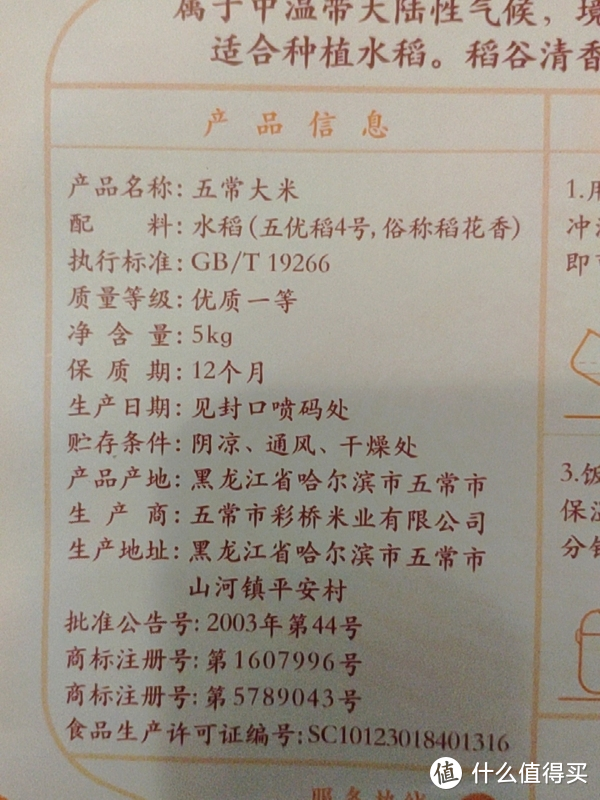 属于中温带大陆性气候，境
适合种植水稻。稻谷清香
产品信息
产品名称：五常大米
配料：水稻（五优稻4号，俗称稻花香）
执行标准：GB/T 19266
质量等级：优质一等
净含量：5kg
保质期：12个月
生产日期：见封口喷码处
贮存条件：阴凉、通风、干燥处
产品产地：黑龙江省哈尔滨市五常市
生产商：五常市彩桥米业有限公司
生产地址：黑龙江省哈尔滨市五常市
山河镇平安村
批准公告号：2003年第44号
商标注册号：第1607996号
商标注册号：第5789043号
食品生产许可证编号：SC10123018401316
1.用
冲
即
3.饭
保温
分钟
值 什么值得买